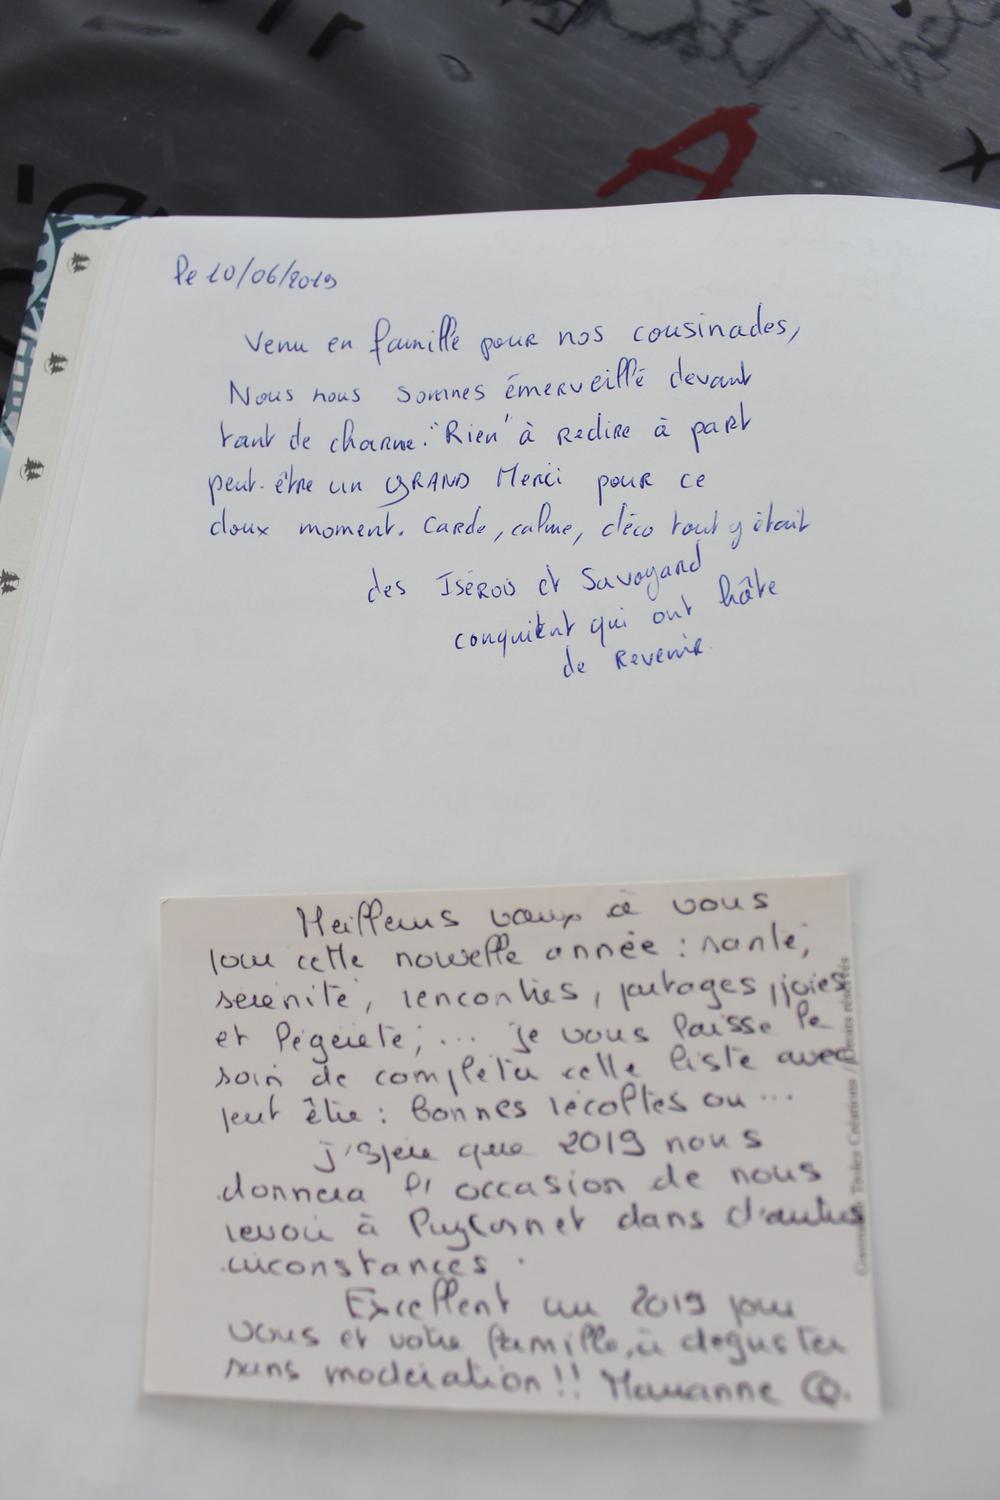 A
le 10/06/2019
Venu en famille pour nos cousinades,
Nous nous sommes émerveillé devant
tant de charme. "Rien" à redire à part
peut-être un GRAND Merci pour ce
doux moment. Cadre, calme, déco tout y était
des Isérois et Savoyard
conquient qui ont hâte
de revenir.
Meilleurs vœux à vous
pour cette nouvelle année : santé,
sérénité, rencontres, partages, joies
et légèreté; ... je vous laisse le
soin de compléter cette liste avec
peut être : bonnes récoltes ou ...
j'espère que 2019 nous
donnera l'occasion de nous
revoir à Puycornet dans d'autres
circonstances.
Excellent an 2019 pour
vous et votre famille, à déguster
sans modération !! Marianne Q.
Créations / Droits réservés